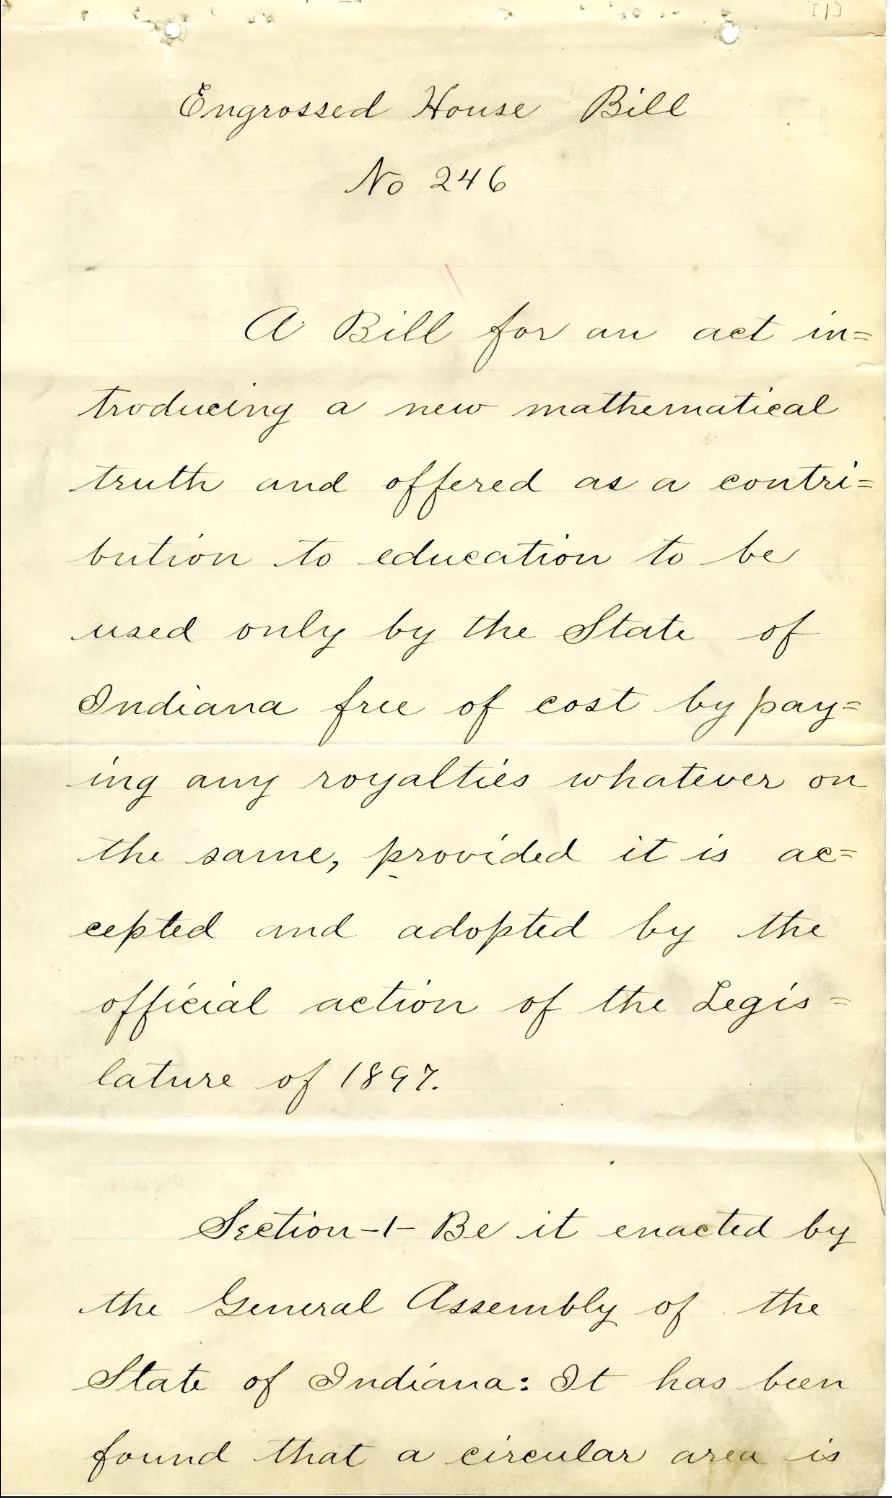 [1]
Engrossed House Bill
No 246
A Bill for an act in=
troducing a new mathematical
truth and offered as a contri=
bution to education to be
used only by the State of
Indiana free of cost by pay=
ing any royalties whatever on
the same, provided it is ac=
cepted and adopted by the
official action of the Legis=
lature of 1897.
Section-1- Be it enacted by
the General Assembly of the
State of Indiana: It has been
found that a circular area is